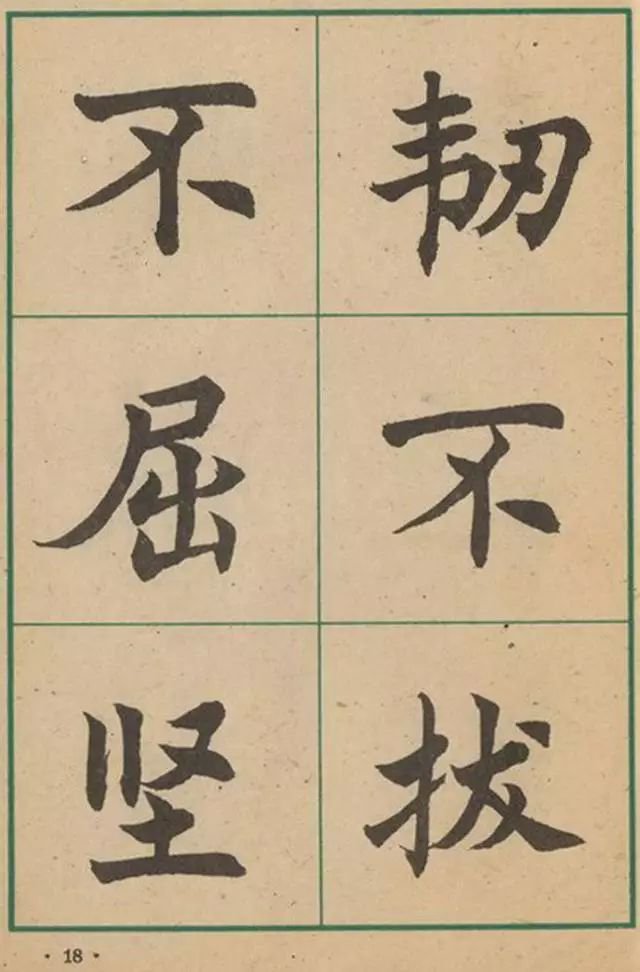 韧不拔
不屈坚
· 18 ·